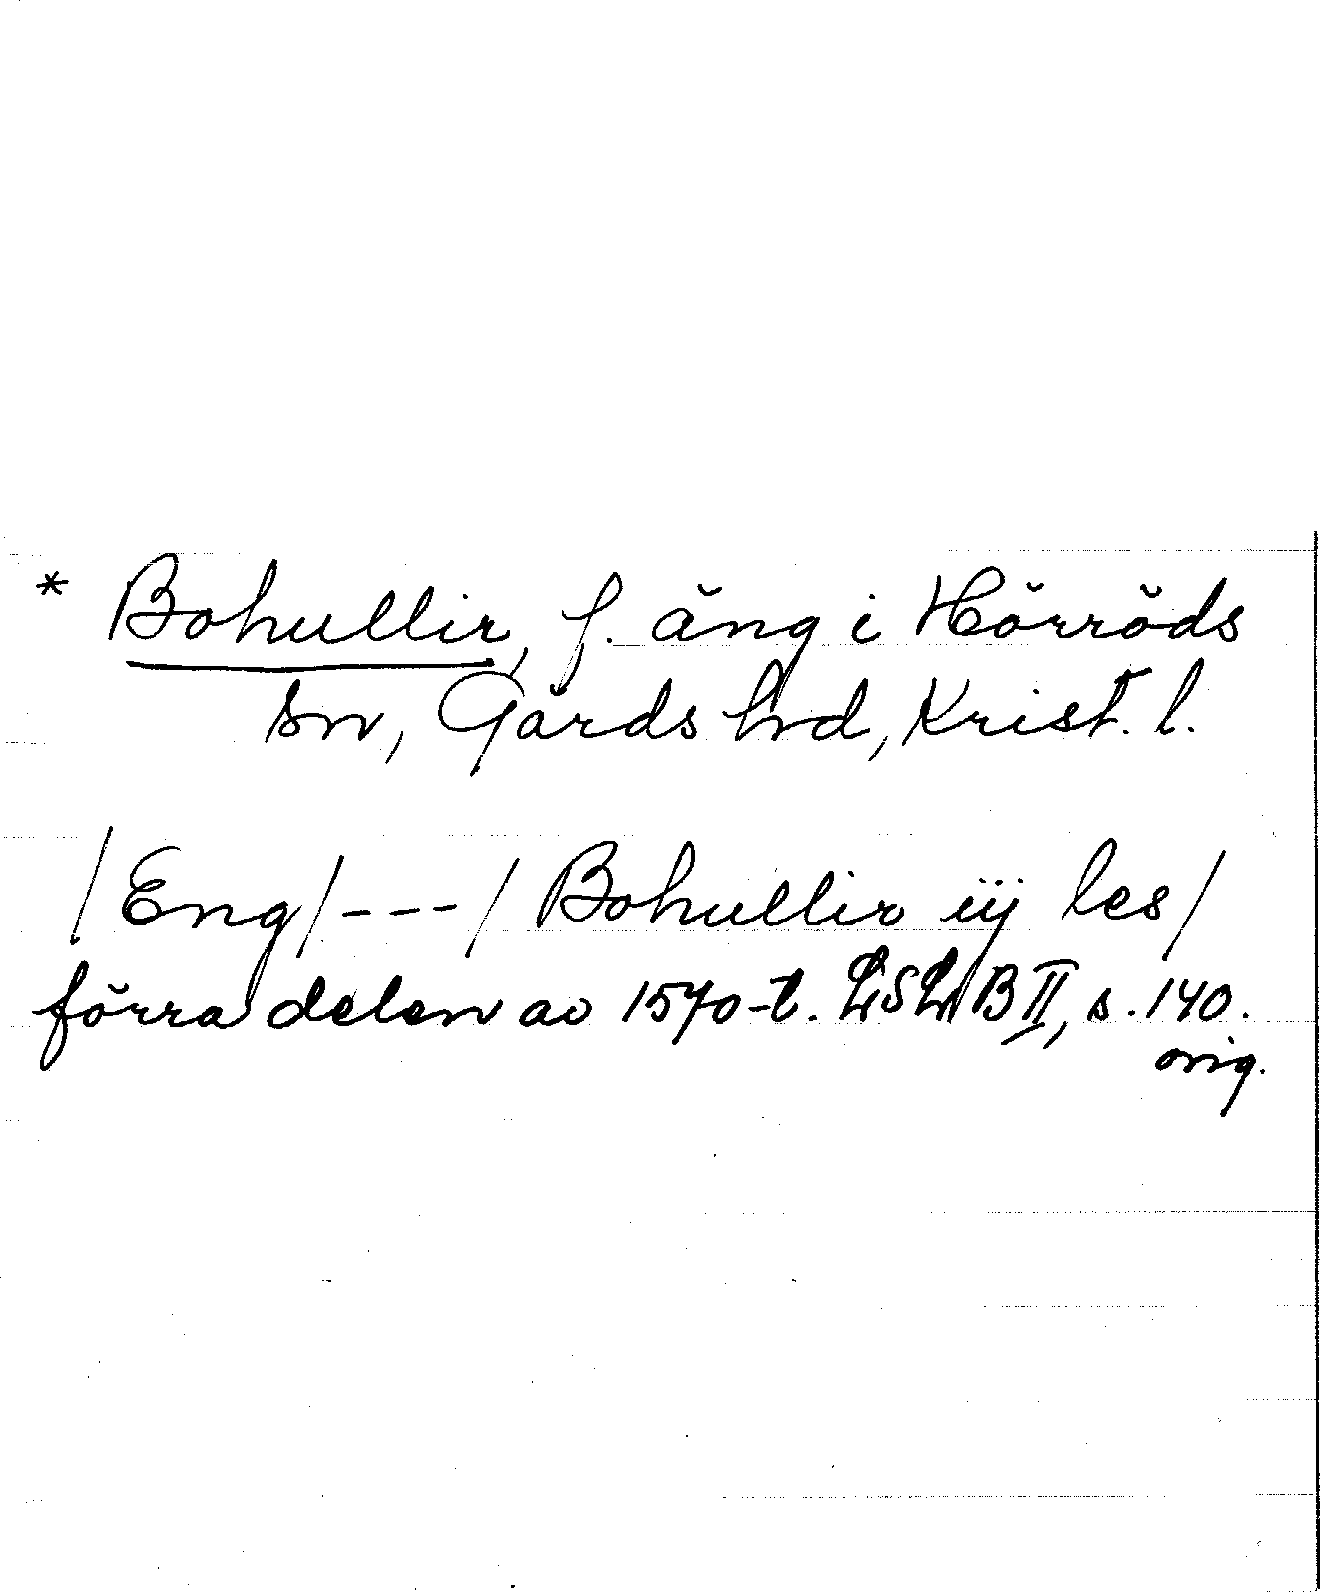 * Bohullir, f. äng i Hörröds
sn, Gärds hrd, Krist. l.
/Eng/---/ Bohullir iij les/
förra delen av 1570-t. LSLB II, s. 140.
orig.